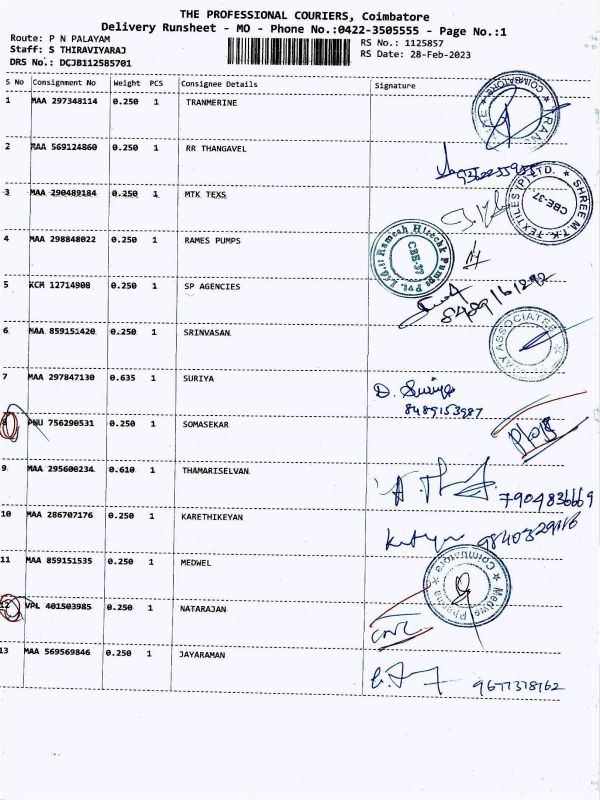 THE PROFESSIONAL COURIERS, Coimbatore
Delivery Runsheet - MO - Phone No.:0422-3505555 - Page No.:1
Route: P N PALAYAM
Staff: S THIRAVIYARAJ
DRS No.: DCJB112585701
RS No.: 1125857
RS Date: 28-Feb-2023
S No Consignment No Weight PCS Consignee Details Signature
1 MAA 297348114 0.250 1 TRANMERINE
COIMBATORE
2 MAA 569124860 0.250 1 RR THANGAVEL
3 MAA 290489184 0.250 1 MTK TEXS
SHREE M.T.K. TEXTILES (P) LTD. CBE-37.
4 MAA 298848022 0.250 1 RAMES PUMPS
Ramesh Hitechk Pumps Pvt. Ltd. CBE-37
5 KCM 12714908 0.250 1 SP AGENCIES
6 MAA 859151420 0.250 1 SRINVASAN
ASSOCIATES
7 MAA 297847130 0.635 1 SURIYA
D. Suriya
8489153987
8 PNU 756290531 0.250 1 SOMASEKAR
9 MAA 295600234 0.610 1 THAMARISELVAN
7904836669
10 MAA 286707176 0.250 1 KARETHIKEYAN
11 MAA 859151535 0.250 1 MEDWEL
Coimbatore
12 VPL 401503985 0.250 1 NATARAJAN
13 MAA 569569846 0.250 1 JAYARAMAN
9677378162